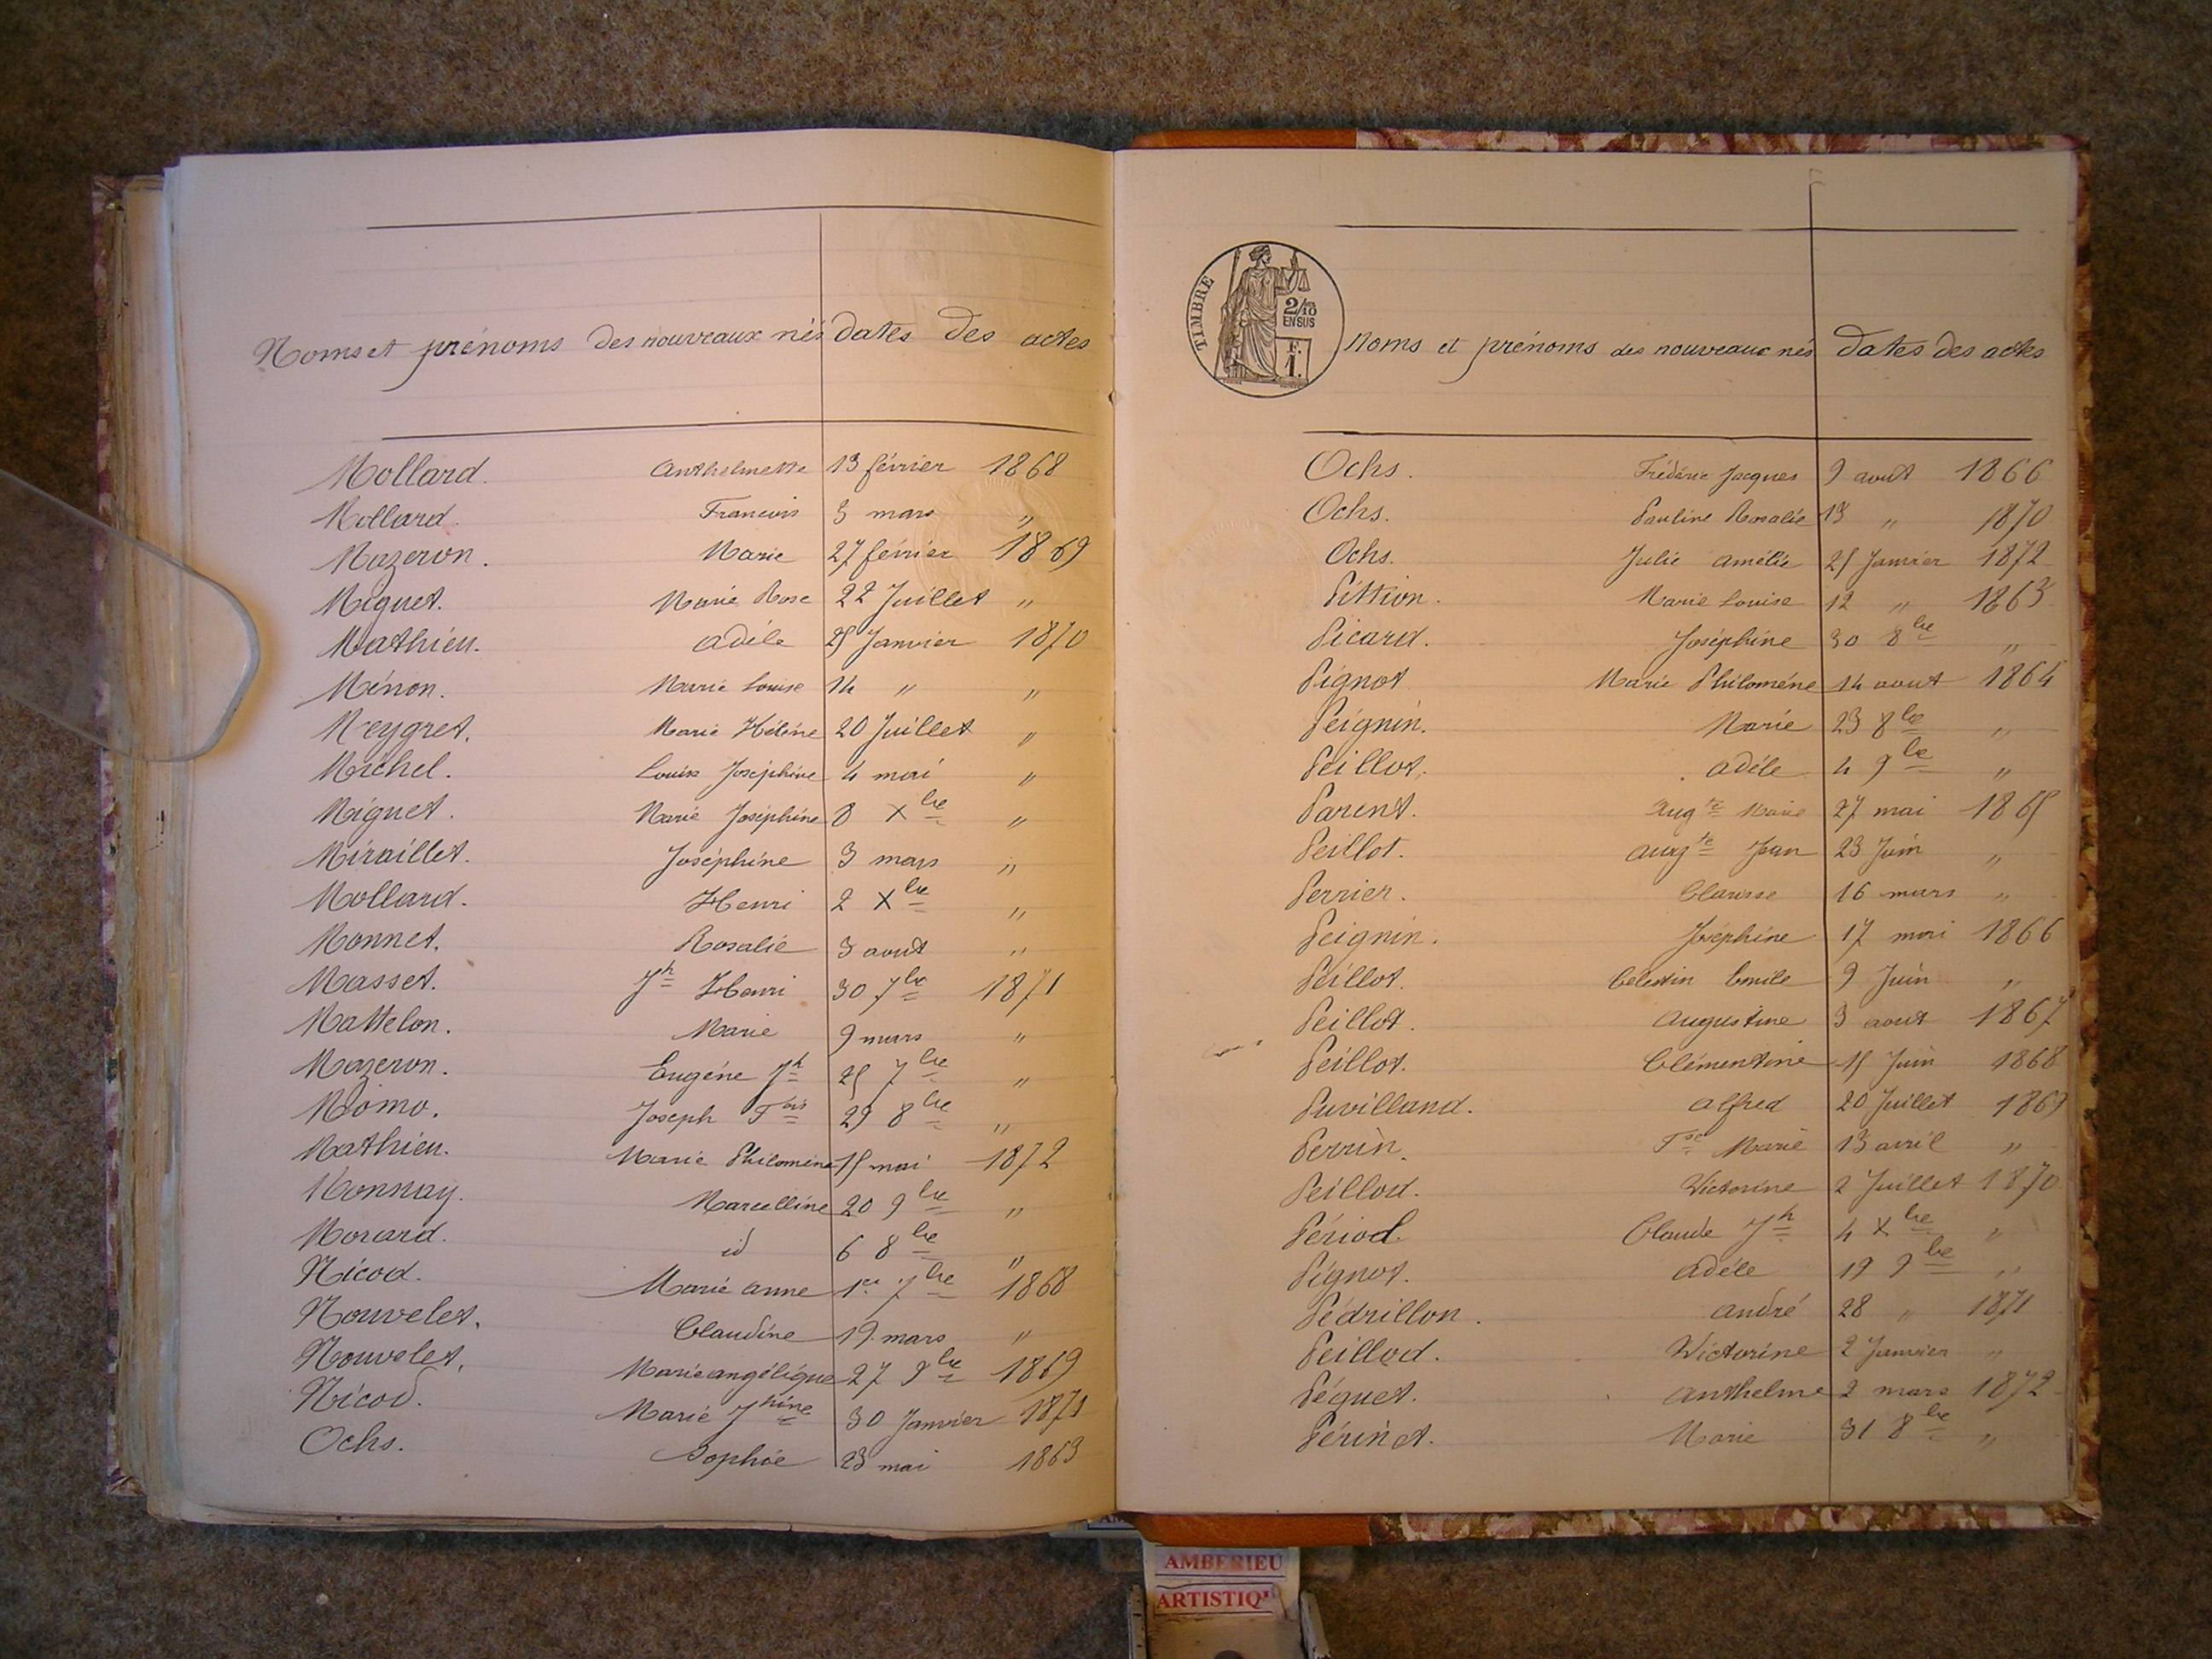 Noms et prénoms des nouveaux nés dates des actes
Mollard. Anthelmette 13 février 1868
Mollard. Francois 3 mars "
Mazeron. Marie 27 février 1869
Miguet. Marie Rose 22 Juillet "
Mathieu. Adèle 25 Janvier 1870
Ménon. Marie Louise 14 " "
Meygret. Marie Hélène 20 Juillet "
Michel. Louise Joséphine 4 mai "
Miguet. Marie Joséphine 8 Xbre "
Miraillet. Joséphine 3 mars "
Mollard. Henri 2 Xbre "
Monnet. Rosalie 3 aout "
Masset. Jh Henri 30 7bre 1871
Mattelon. Marie 9 mars "
Mazeron. Eugéne Jh 25 7bre "
Momo. Joseph Fois 29 8bre "
Mathieu. Marie Philomène 15 mai 1872
Monnay. Marcelline 20 9bre "
Morard. id 6 8bre "
Nicod. Marie Anne 1er 7bre 1868
Nouvelet. Claudine 19 mars "
Nouvelet. Marie angélique 27 9bre 1869
Nicod. Marie Jhine 30 Janvier 1871
Ochs. Sophie 23 mai 1863
TIMBRE
2/10
EN SUS
F.
1.
Noms et prénoms des nouveaux nés dates des actes
Ochs. Frédéric Jacques 9 aout 1866
Ochs. Pauline Rosalie 13 " 1870
Ochs. Julie Amélie 25 Janvier 1872
Pittion. Marie Louise 12 " 1863
Picard. Joséphine 30 8bre "
Pignot Marie Philoméne 14 aout 1864
Peignin. Marie 23 8bre "
Peillot. Adéle 4 9bre "
Parent. Augte Marie 27 mai 1865
Peillot. Augte Jean 23 Juin "
Perrier. Clarisse 16 mars "
Peignin. Joséphine 17 mai 1866
Peillot. Célestin Emile 9 Juin "
Peillot. Augustine 3 aout 1867
Peillot. Clémentine 15 Juin 1868
Puvilland. Alfred 20 Juillet 1869
Perrin. Fse Marie 13 avril "
Peillod. Victorine 2 Juillet 1870
Périod. Claude Jh 4 Xbre "
Pignot. Adéle 19 9bre "
Pédrillon. André 28 " 1871
Peillod. Victorine 2 Janvier "
Péguet. Anthelme 2 mars 1872
Périnet. Marie 31 8bre "
AMBERIEU
ARTISTIQ